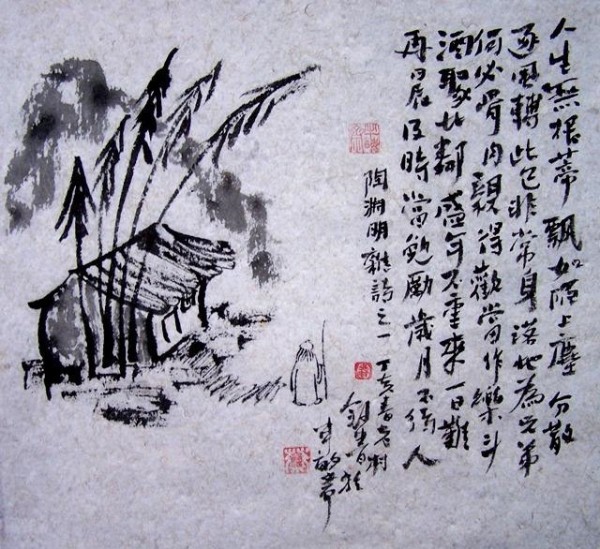 人生無根蒂飄如陌上塵分散
逐風轉此已非常身落地為兄弟
何必骨肉親得歡當作樂斗
酒聚比鄰盛年不重來一日難
再晨及時當勉勵歲月不待人
陶淵明雜詩之一丁亥春老樹